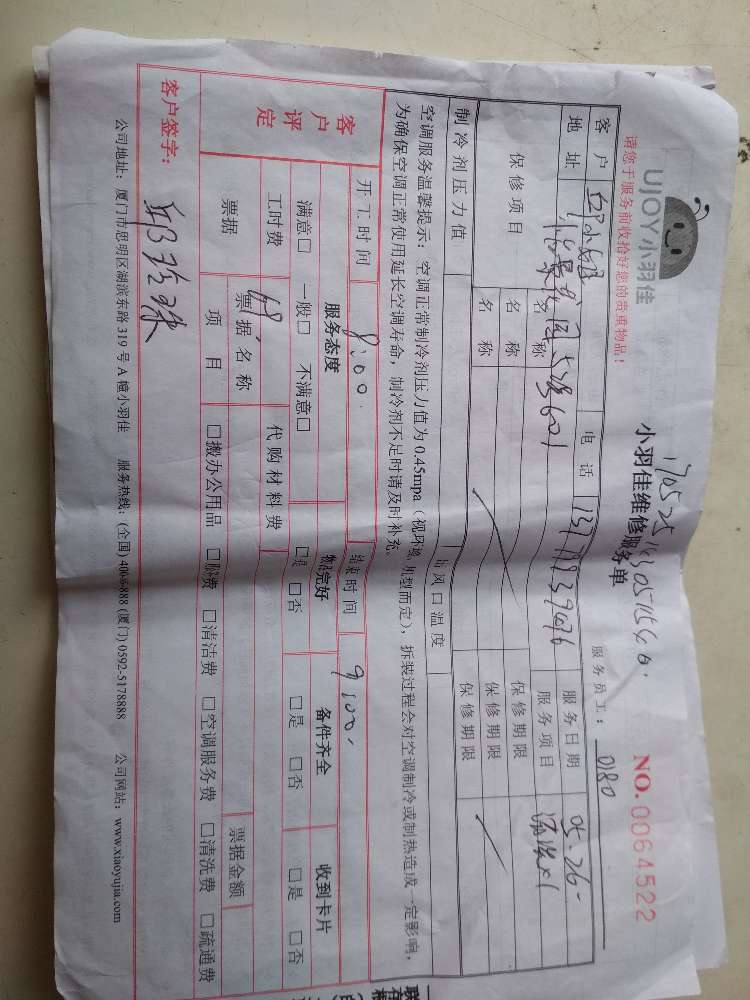 UJOY小羽佳
请您于服务前收拾好您的贵重物品！
小羽佳维修服务单
NO.0064522
服务员工：0180
客户 电话 服务日期 05.26
地址 服务项目
保修项目 名称 保修期限
名称 保修期限
名称 保修期限
制冷剂压力值 出风口温度
空调服务温馨提示：空调正常制冷剂压力值为0.45mpa（视环境、机型而定），拆装过程会对空调制冷或制热造成一定影响，
为确保空调正常使用延长空调寿命，制冷剂不足时请及时补充。
客户评定
开工时间 8:00 结束时间 9:00
服务态度 物品完好 备件齐全 收到卡片
满意□ 一般□ 不满意□ □是 □否 □是 □否 □是 □否
工时费 代购材料费
票据 票据名称 票据金额
项目 □搬办公用品 □服费 □清洁费 □空调服务费 □清洗费 □疏通费
客户签字：
公司地址：厦门市思明区湖滨东路319号A幢小羽佳 服务热线：(全国) 400-8-888 (厦门) 0592-5178888 公司网站：www.xiaoyujia.com